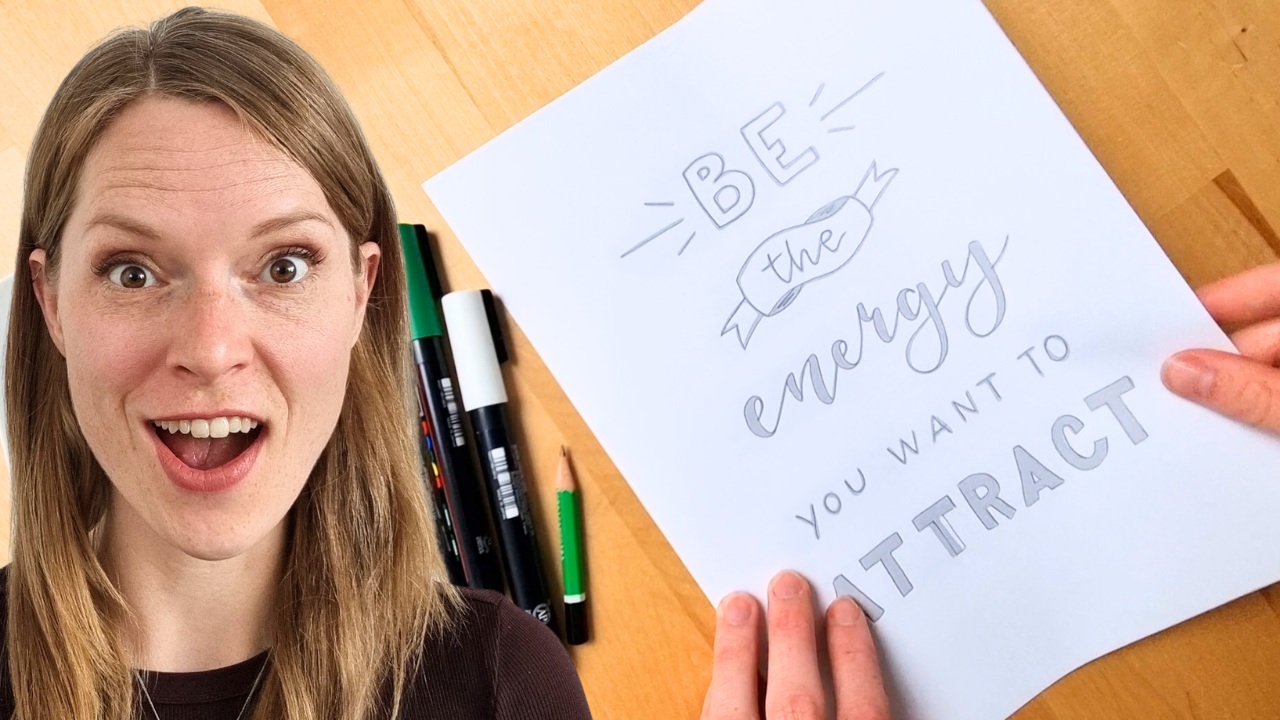 BE
the
energy
YOU WANT TO
ATTRACT